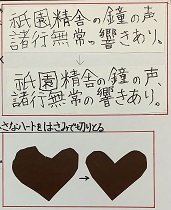 祇園精舎の鐘の声、
諸行無常の響きあり。
祇園精舎の鐘の声、
諸行無常の響きあり。
さなハートをはさみで切りとる